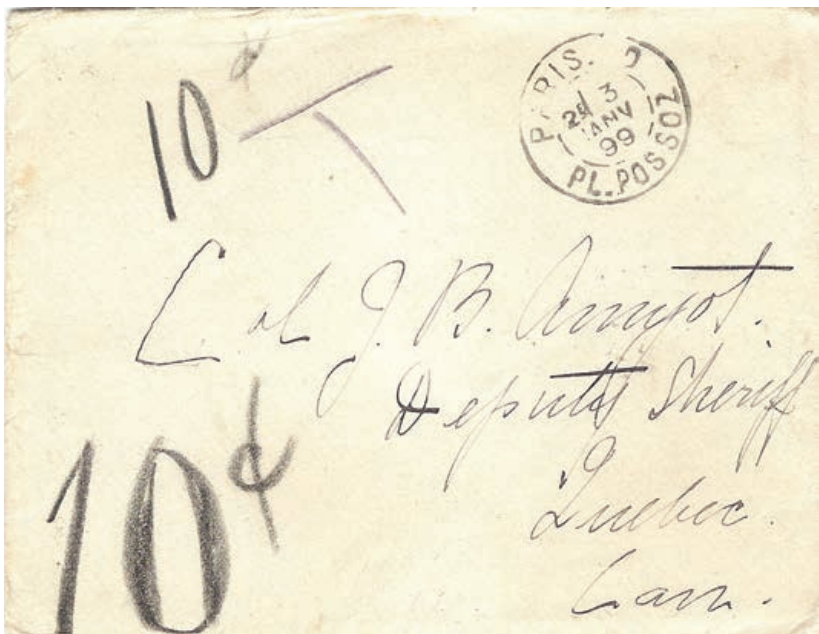 10¢ T
PARIS.
2E 3
JANV
99
PL. POSSOZ
Col J. B. Amyot.
Deputy Sheriff
Quebec.
Can.
10¢